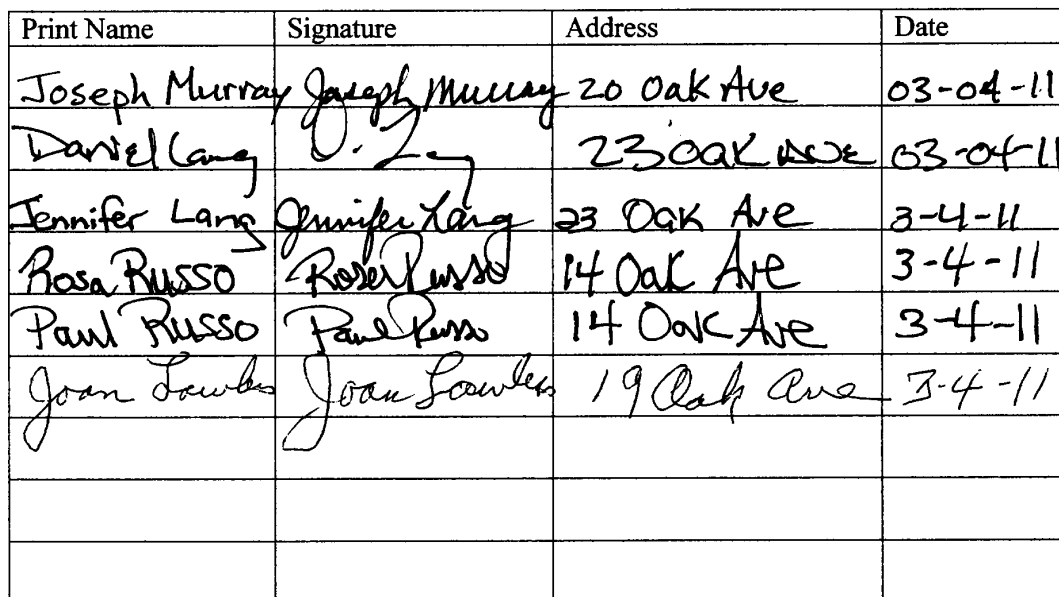 Print Name Signature Address Date
Joseph Murray Joseph Murray 20 Oak Ave 03-04-11
Daniel Lang D. Lang 23 Oak Ave 03-04-11
Jennifer Lang Jennifer Lang 23 Oak Ave 3-4-11
Rosa Russo Rosa Russo 14 Oak Ave 3-4-11
Paul Russo Paul Russo 14 Oak Ave 3-4-11
Joan Lawless Joan Lawless 19 Oak Ave 3-4-11